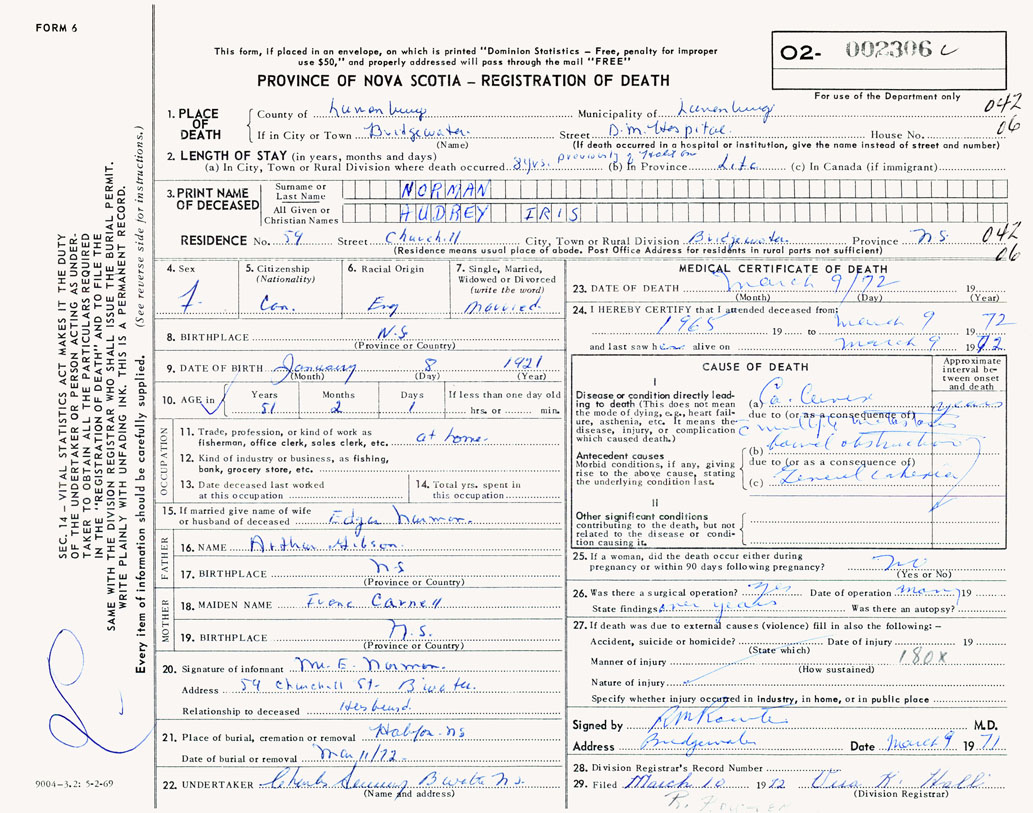 FORM 6
This form, if placed in an envelope, on which is printed "Dominion Statistics – Free, penalty for improper
use $50," and properly addressed will pass through the mail "FREE"
O2- 002306 c
For use of the Department only
PROVINCE OF NOVA SCOTIA – REGISTRATION OF DEATH
1. PLACE OF DEATH
County of Lunenburg Municipality of Lunenburg 042
If in City or Town Bridgewater Street D.M. Hospital House No. 06
(Name) (If death occurred in a hospital or institution, give the name instead of street and number)
2. LENGTH OF STAY (in years, months and days)
(a) In City, Town or Rural Division where death occurred 8 yrs. previously (b) In Province Life (c) In Canada (if immigrant)
3. PRINT NAME OF DECEASED
Surname or Last Name NORMAN
All Given or Christian Names AUDREY IRIS
RESIDENCE No. 59 Street Churchill City, Town or Rural Division Bridgewater Province N.S. 042
(Residence means usual place of abode. Post Office Address for residents in rural parts not sufficient) 06
4. Sex F.
5. Citizenship (Nationality) Can.
6. Racial Origin Eng
7. Single, Married, Widowed or Divorced (write the word) Married.
8. BIRTHPLACE N.S
(Province or Country)
9. DATE OF BIRTH January 8 1921
(Month) (Day) (Year)
10. AGE in Years 51 Months 2 Days 1 If less than one day old hrs. or min.
OCCUPATION
11. Trade, profession, or kind of work as
fisherman, office clerk, sales clerk, etc. at home.
12. Kind of industry or business, as fishing,
bank, grocery store, etc.
13. Date deceased last worked
at this occupation
14. Total yrs. spent in
this occupation
15. If married give name of wife
or husband of deceased Edgar Norman.
FATHER
16. NAME Arthur Gibson.
17. BIRTHPLACE N S
(Province or Country)
MOTHER
18. MAIDEN NAME Irene Carnell
19. BIRTHPLACE N.S.
(Province or Country)
20. Signature of informant Mr. E. Norman.
Address 59 Churchill St. B'water.
Relationship to deceased Husband
21. Place of burial, cremation or removal Halifax NS
Date of burial or removal Mar 11/72.
22. UNDERTAKER B'water N.S.
(Name and address)
MEDICAL CERTIFICATE OF DEATH
23. DATE OF DEATH March 9/72 19
(Month) (Day) (Year)
24. I HEREBY CERTIFY that I attended deceased from:
1965 19 to March 9 72
and last saw her alive on March 9 1972
CAUSE OF DEATH
Approximate interval between onset and death
I
Disease or condition directly leading
to death (This does not mean
the mode of dying, e.g., heart failure,
asthenia, etc. It means the
disease, injury, or complication
which caused death.)
(a) Ca. Cervix years
due to (or as a consequence of)
c multiple metastases
Antecedent causes
Morbid conditions, if any, giving
rise to the above cause, stating
the underlying condition last.
(b) bowel obstruction
due to (or as a consequence of)
(c) General cachexia
II
Other significant conditions
contributing to the death, but not
related to the disease or condition
causing it.
25. If a woman, did the death occur either during
pregnancy or within 90 days following pregnancy? no
(Yes or No)
26. Was there a surgical operation? Yes Date of operation many 19
State findings over years Was there an autopsy?
27. If death was due to external causes (violence) fill in also the following: –
Accident, suicide or homicide? Date of injury 19
(State which)
Manner of injury 180X
(How sustained)
Nature of injury
Specify whether injury occurred in industry, in home, or in public place
Signed by M.D.
Address Bridgewater Date March 9 1971
28. Division Registrar's Record Number
29. Filed March 10 1972
(Division Registrar)
SEC. 14 – VITAL STATISTICS ACT MAKES IT THE DUTY
OF THE UNDERTAKER OR PERSON ACTING AS UNDER-
TAKER TO OBTAIN ALL THE PARTICULARS REQUIRED
IN THE "REGISTRATION OF DEATH" AND TO FILE THE
SAME WITH THE DIVISION REGISTRAR WHO SHALL ISSUE THE BURIAL PERMIT.
WRITE PLAINLY WITH UNFADING INK. THIS IS A PERMANENT RECORD.
Every item of information should be carefully supplied. (See reverse side for instructions.)
9004-3.2: 5-2-69